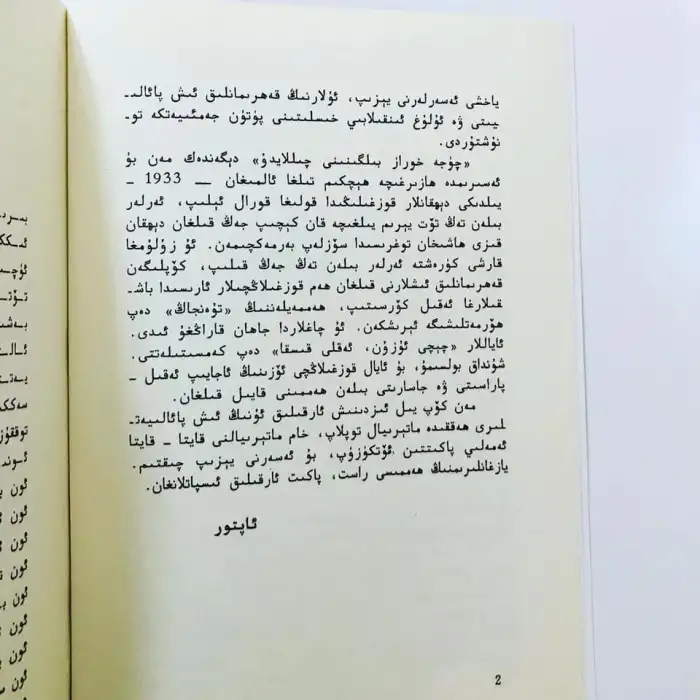 ياخشى ئەسەرلەرنى يېزىپ، ئۇلارنىڭ قەھرىمانلىق ئىش پائالـ
ىيىتى ۋە ئۇلۇغ ئىنقىلابىي خىسلىتىنى پۈتۈن جەمئىيەتكە تو-
نۇشتۇردى.
«چۈجە خوراز بىلگىنىنى چىللايدۇ» دېگەندەك مەن بۇ
ئەسىرىمدە ھازىرغىچە ھېچكىم تىلغا ئالمىغان — 1933 -
يىلدىكى دېھقانلار قوزغىلىڭىدا قولىغا قورال ئېلىپ، ئەرلەر
بىلەن تەڭ تۆت يېرىم يىلغىچە قان كېچىپ جەڭ قىلغان دېھقان
قىزى ھاشىخان توغرىسىدا سۆزلەپ بەرمەكچىمەن. ئۇ زۇلۇمغا
قارشى كۈرەشتە ئەرلەر بىلەن تەڭ جەڭ قىلىپ، كۆپلىگەن
قەھرىمانلىق ئىشلارنى قىلغان ھەم قوزغىلاڭچىلار ئارىسىدا باش-
قىلارغا ئەقىل كۆرسىتىپ، ھەممەيلەننىڭ «تۈەنجاڭ» دەپ
ھۆرمەتلىشىگە ئېرىشكەن. ئۇ چاغلاردا جاھان قاراڭغۇ ئىدى.
ئاياللار «چېچى ئۇزۇن، ئەقلى قىسقا» دەپ كەمسىتىلەتتى.
شۇنداق بولسىمۇ، بۇ ئايال قوزغىلاڭچى ئۆزىنىڭ ئاجايىپ ئەقىل -
پاراسىتى ۋە جاسارىتى بىلەن ھەممىنى قايىل قىلغان.
مەن كۆپ يىل ئىزدىنىش ئارقىلىق ئۇنىڭ ئىش پائالىيەتـ
لىرى ھەققىدە ماتېرىيال توپلاپ، خام ماتېرىيالنى قايتا - قايتا
ئەمەلىي پاكىتتىن ئۆتكۈزۈپ، بۇ ئەسەرنى يېزىپ چىقتىم.
يازغانلىرىمنىڭ ھەممىسى راست، پاكىت ئارقىلىق ئىسپاتلانغان.
ئاپتور
2